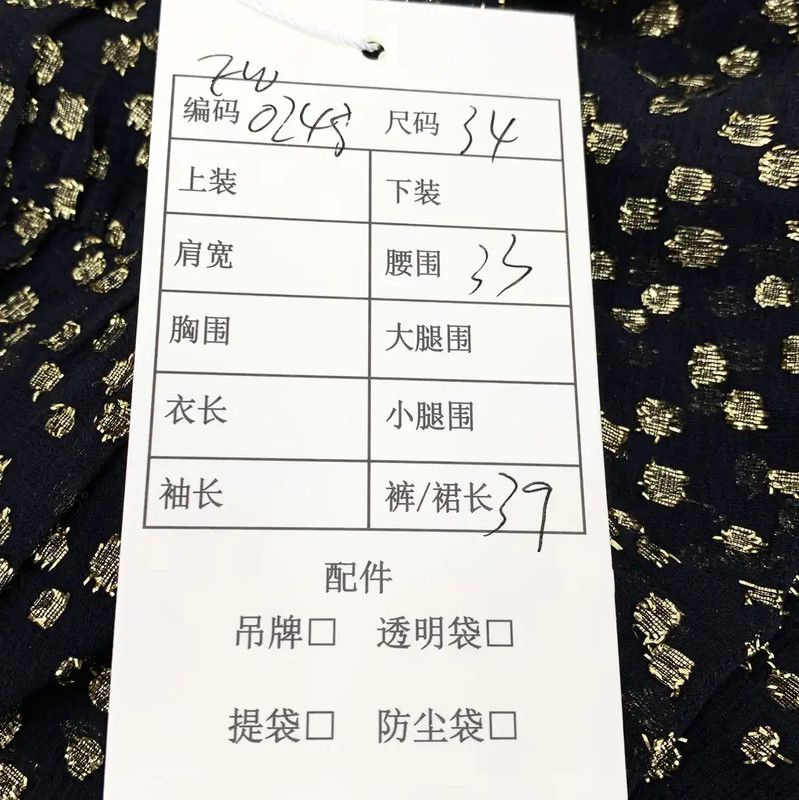 ZW
编码 0248 尺码 34
上装 下装
肩宽 腰围 33
胸围 大腿围
衣长 小腿围
袖长 裤/裙长 39
配件
吊牌□ 透明袋□
提袋□ 防尘袋□